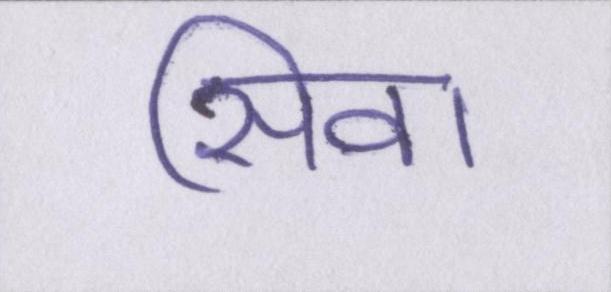 सिवा